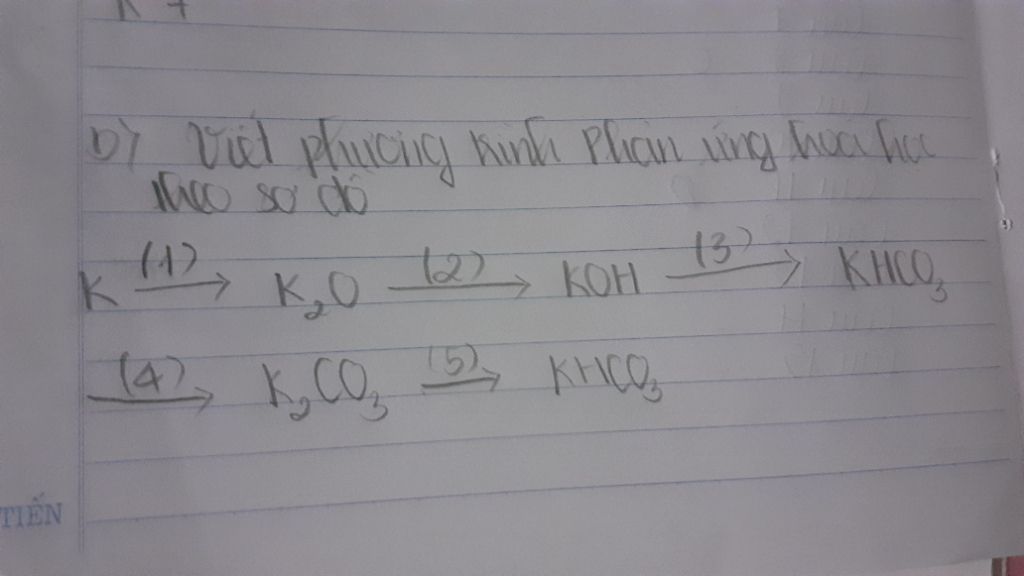 K +
b) Viết phương trình phản ứng hóa học
theo sơ đồ
K (1)→ K₂O (2)→ KOH (3)→ KHCO₃
(4)→ K₂CO₃ (5)→ KHCO₃
TIẾN